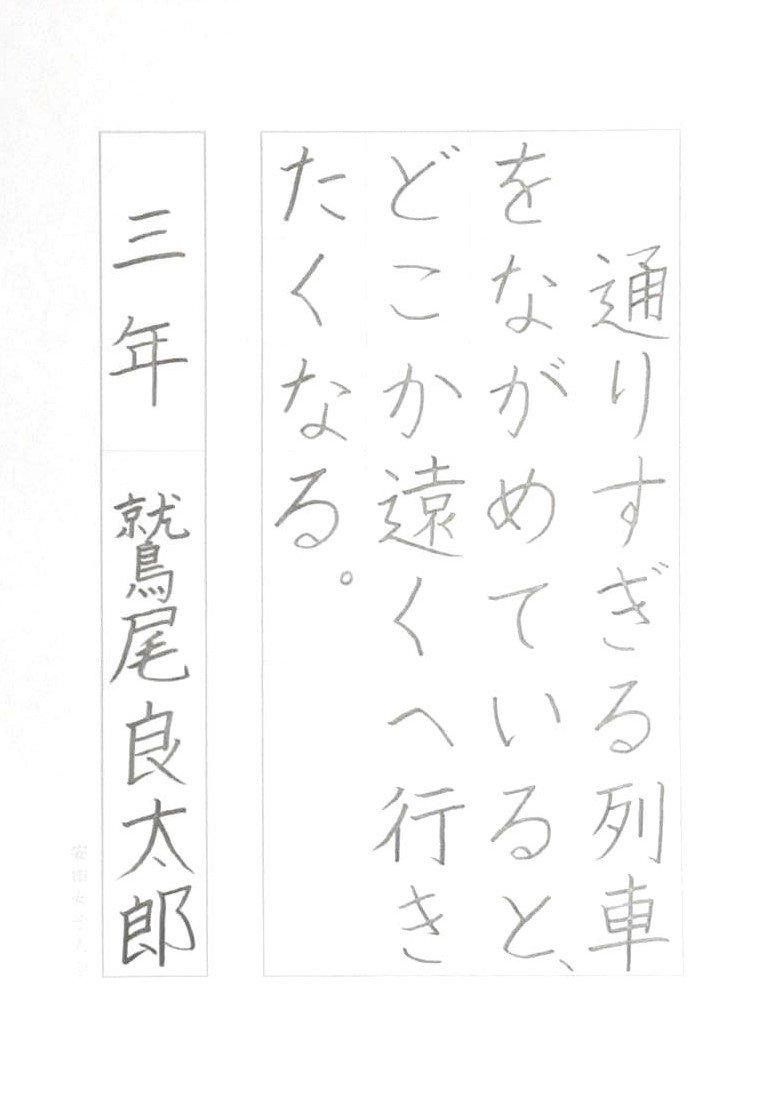 通りすぎる列車
をながめていると、
どこか遠くへ行き
たくなる。
三年 鷲尾良太郎